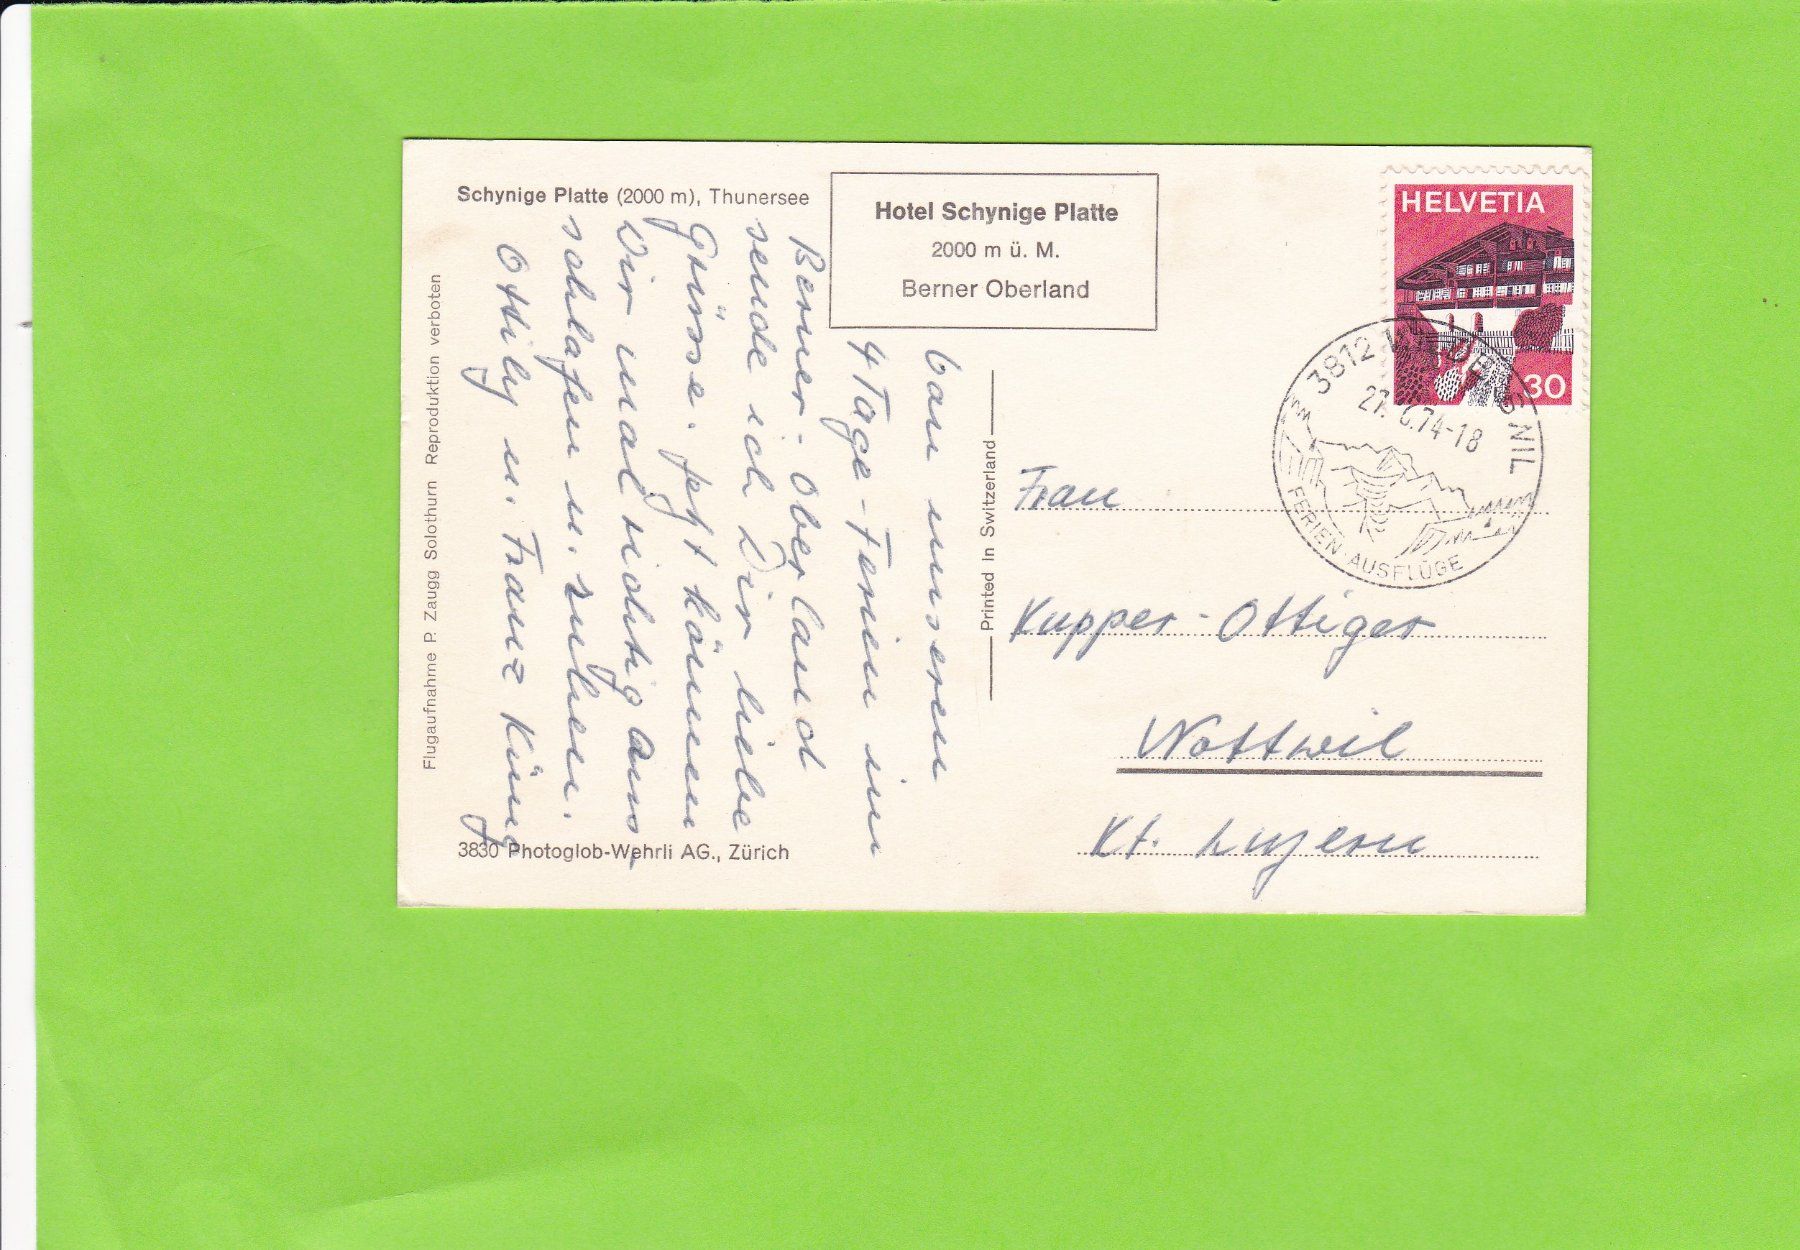 Schynige Platte (2000 m), Thunersee
Hotel Schynige Platte
2000 m ü. M.
Berner Oberland
HELVETIA
30
3812 WILDERSWIL
27. 74-18
FERIEN · AUSFLÜGE
Von unseren
4 Tage-Ferien im
Berner-Oberland
sende ich Dir liebe
Grüsse. Jetzt können
wir mal richtig aus-
schlafen u. ruhen.
Ottily u. Franz Küng
Flugaufnahme P. Zaugg Solothurn Reproduktion verboten
Printed in Switzerland
Frau
Kupper-Ottiger
Nottwil
Kt. Luzern
3830 Photoglob-Wehrli AG., Zürich